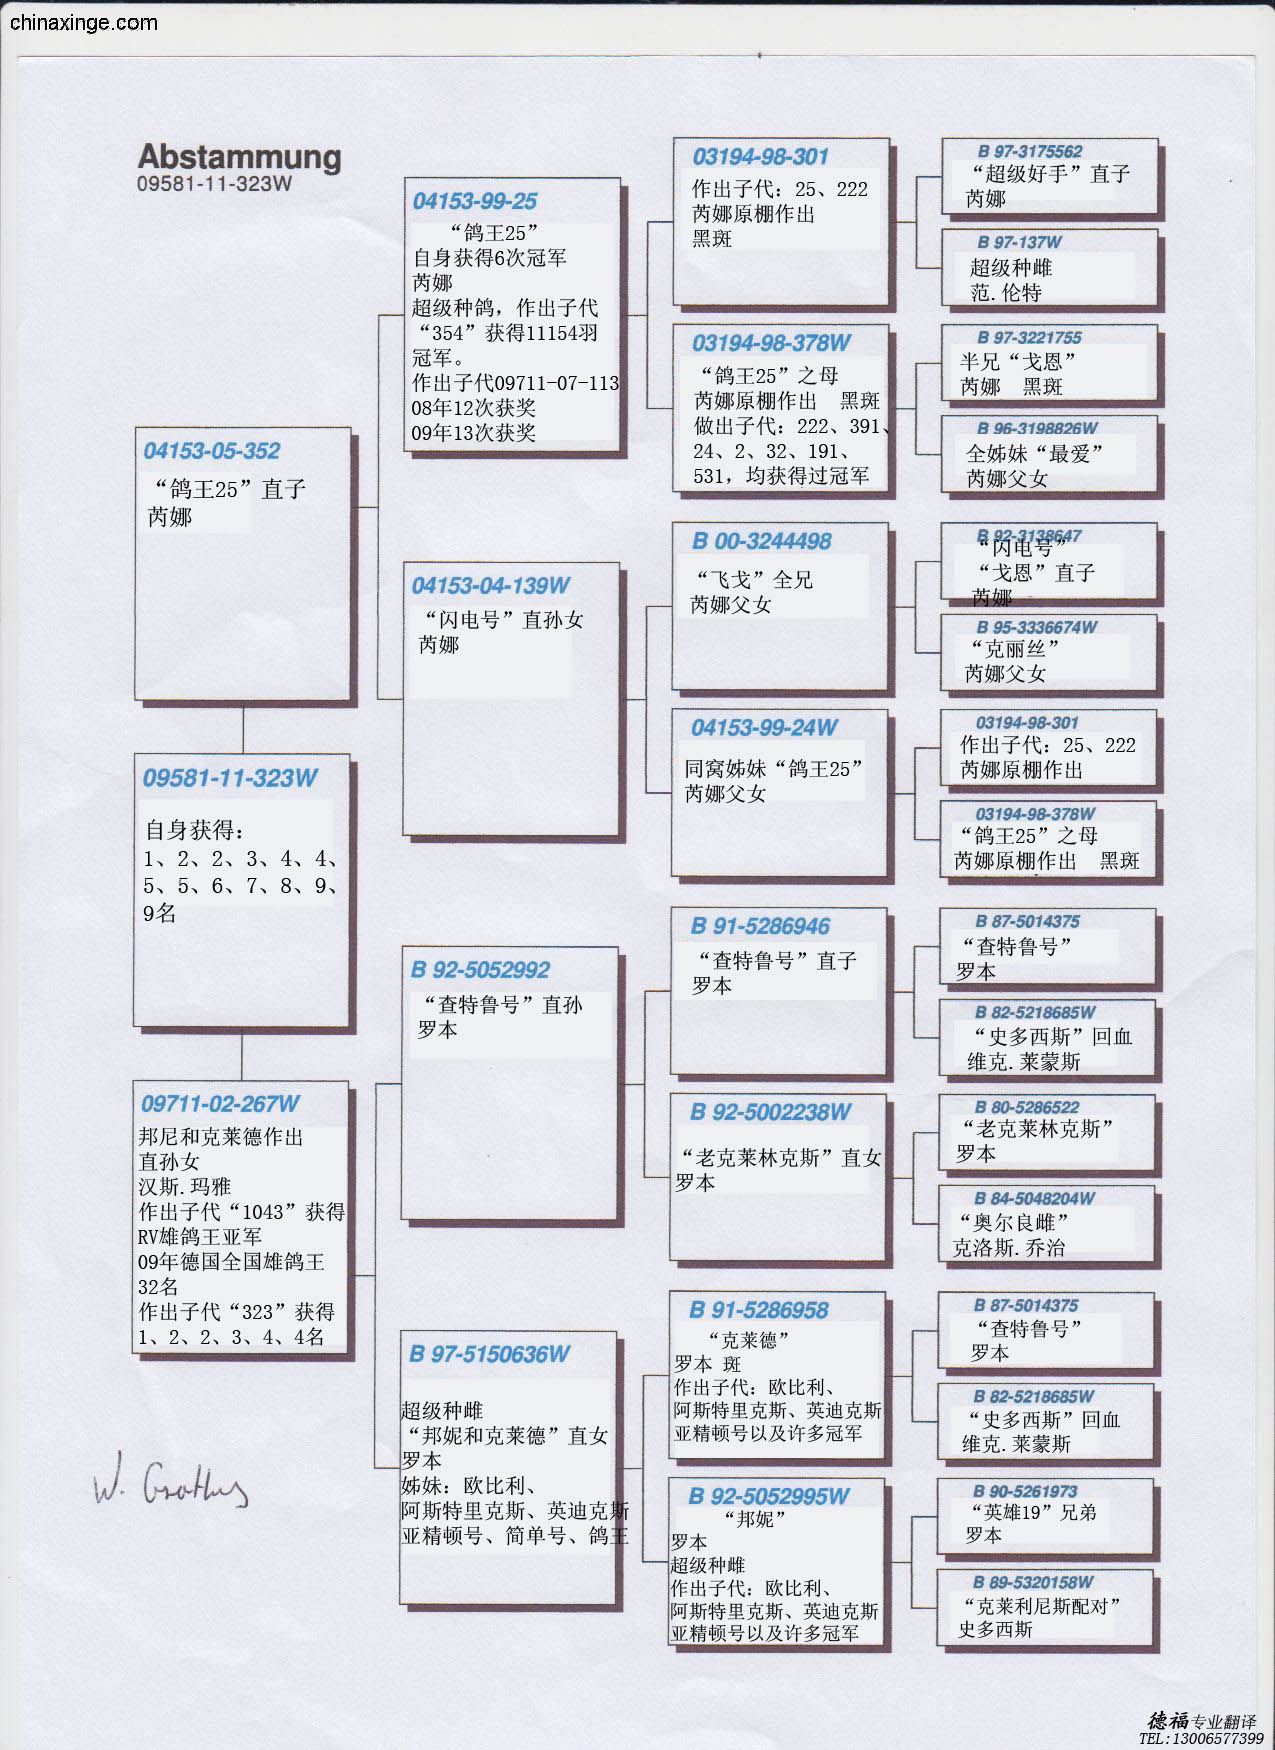 chinaxinge.com
Abstammung
09581-11-323W
04153-05-352
“鸽王25”直子
芮娜
09581-11-323W
自身获得：
1、2、2、3、4、4、
5、5、6、7、8、9、
9名
09711-02-267W
邦尼和克莱德作出
直孙女
汉斯.玛雅
作出子代“1043”获得
RV雄鸽王亚军
09年德国全国雄鸽王
32名
作出子代“323”获得
1、2、2、3、4、4名
04153-99-25
“鸽王25”
自身获得6次冠军
芮娜
超级种鸽，作出子代
“354”获得11154羽
冠军。
作出子代09711-07-113
08年12次获奖
09年13次获奖
04153-04-139W
“闪电号”直孙女
芮娜
B 92-5052992
“查特鲁号”直孙
罗本
B 97-5150636W
超级种雌
“邦妮和克莱德”直女
罗本
姊妹：欧比利、
阿斯特里克斯、英迪克斯
亚精顿号、简单号、鸽王
03194-98-301
作出子代：25、222
芮娜原棚作出
黑斑
03194-98-378W
“鸽王25”之母
芮娜原棚作出 黑斑
做出子代：222、391、
24、2、32、191、
531，均获得过冠军
B 00-3244498
“飞戈”全兄
芮娜父女
04153-99-24W
同窝姊妹“鸽王25”
芮娜父女
B 91-5286946
“查特鲁号”直子
罗本
B 92-5002238W
“老克莱林克斯”直女
罗本
B 91-5286958
“克莱德”
罗本 斑
作出子代：欧比利、
阿斯特里克斯、英迪克斯
亚精顿号以及许多冠军
B 92-5052995W
“邦妮”
罗本
超级种雌
作出子代：欧比利、
阿斯特里克斯、英迪克斯
亚精顿号以及许多冠军
B 97-3175562
“超级好手”直子
芮娜
B 97-137W
超级种雌
范.伦特
B 97-3221755
半兄“戈恩”
芮娜 黑斑
B 96-3198826W
全姊妹“最爱”
芮娜父女
B 92-3138647
“闪电号”
“戈恩”直子
芮娜
B 95-3336674W
“克丽丝”
芮娜父女
03194-98-301
作出子代：25、222
芮娜原棚作出
03194-98-378W
“鸽王25”之母
芮娜原棚作出 黑斑
B 87-5014375
“查特鲁号”
罗本
B 82-5218685W
“史多西斯”回血
维克.莱蒙斯
B 80-5286522
“老克莱林克斯”
罗本
B 84-5048204W
“奥尔良雌”
克洛斯.乔治
B 87-5014375
“查特鲁号”
罗本
B 82-5218685W
“史多西斯”回血
维克.莱蒙斯
B 90-5261973
“英雄19”兄弟
罗本
B 89-5320158W
“克莱利尼斯配对”
史多西斯
德福专业翻译
TEL:13006577399